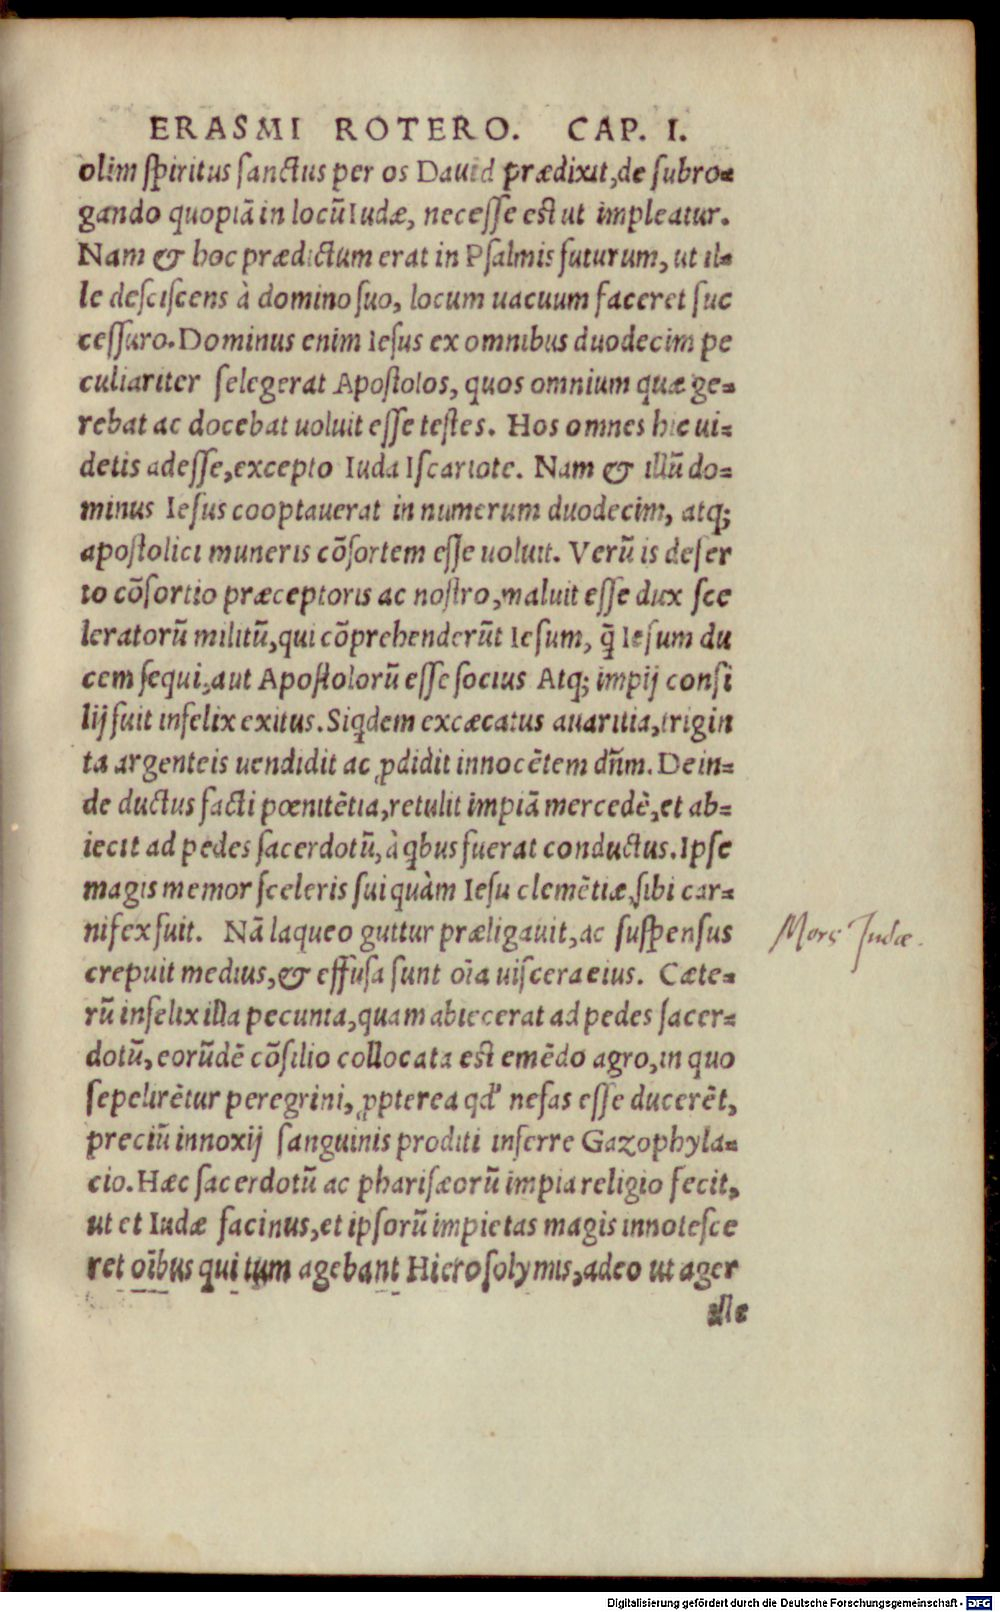 ERASMI ROTERO. CAP. I.
olim spiritus sanctus per os Dauid prædixit, de subro-
gando quopiā in locū Iudæ, necesse est ut impleatur.
Nam & hoc prædictum erat in Psalmis futurum, ut il-
le desciscens à domino suo, locum uacuum faceret suc
cessuro. Dominus enim Iesus ex omnibus duodecim pe
culiariter selegerat Apostolos, quos omnium quæ ge-
rebat ac docebat uoluit esse testes. Hos omnes hic ui-
detis adesse, excepto Iuda Iscariote. Nam & illū do-
minus Iesus cooptauerat in numerum duodecim, atq;
apostolici muneris cōsortem esse uoluit. Verū is deser
to cōsortio præceptoris ac nostro, maluit esse dux sce
leratorū militū, qui cōprehenderūt Iesum, q̄ Iesum du
cem sequi, aut Apostolorū esse socius Atq; impij consi
lij fuit infelix exitus. Siqdem excæcatus auaritia, trigin
ta argenteis uendidit ac ꝓdidit innocētem dñm. Dein-
de ductus facti pœnitētia, retulit impiā mercedē, et ab-
iecit ad pedes sacerdotū, à qbus fuerat conductus. Ipse
magis memor sceleris sui quàm Iesu clemētiæ, sibi car-
nifex fuit. Nā laqueo guttur præligauit, ac suspensus
crepuit medius, & effusa sunt oīa uiscera eius. Cæte-
rū infelix illa pecunia, quam abiecerat ad pedes sacer-
dotū, eorūdē cōsilio collocata est emēdo agro, in quo
sepelirētur peregrini, ꝓpterea qd' nefas esse ducerēt,
preciū innoxij sanguinis proditi inferre Gazophyla-
cio. Hæc sacerdotū ac pharisæorū impia religio fecit,
ut et Iudæ facinus, et ipsorū impietas magis innotesce
ret oībus qui tum agebant Hierosolymis, adeo ut ager
ille
Mors Judæ.
Digitalisierung gefördert durch die Deutsche Forschungsgemeinschaft - DFG